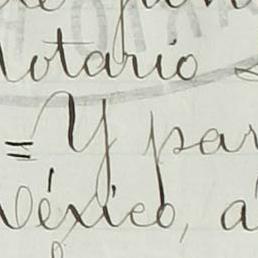 Notario
= Y par
México, á